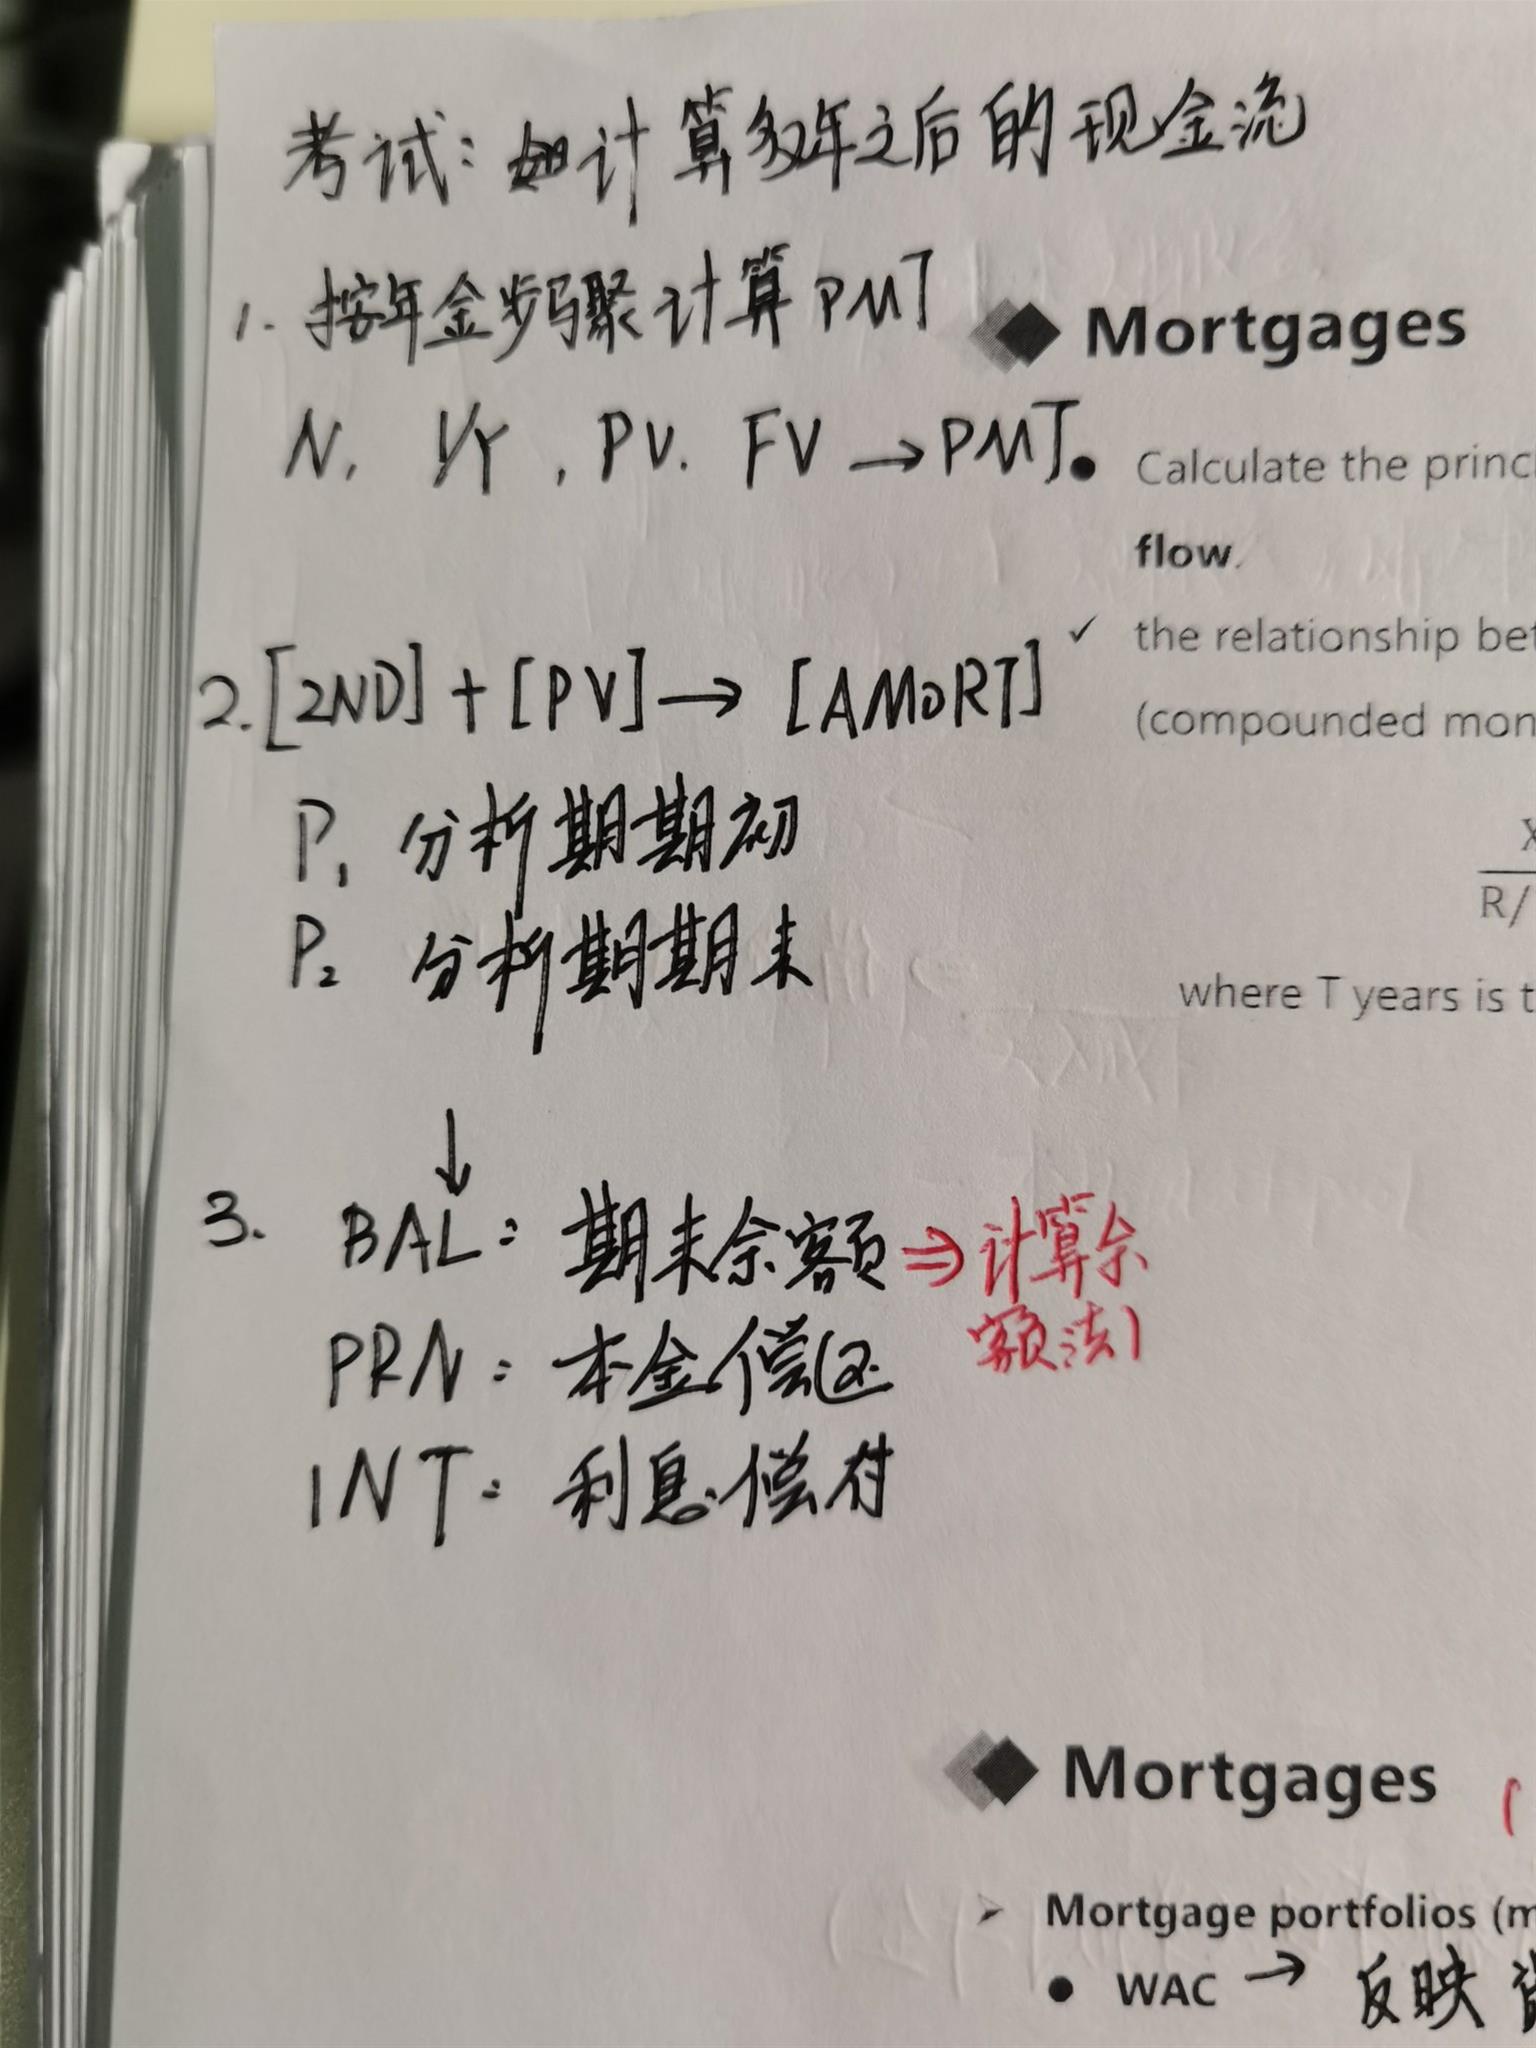 考试：如计算多年之后的现金流
1. 按年金步骤计算PMT
Mortgages
N, I/Y, PV. FV → PMT.
• Calculate the princ
flow.
2. [2ND] + [PV] → [AMORT]
✓ the relationship bet
(compounded mon
P₁ 分析期期初
X
R/
P₂ 分析期期末
where T years is t
↓
3. BAL: 期末余额 ⇒ 计算余
额法1
PRN: 本金偿还
INT: 利息偿付
Mortgages
➢ Mortgage portfolios (m
• WAC → 反映